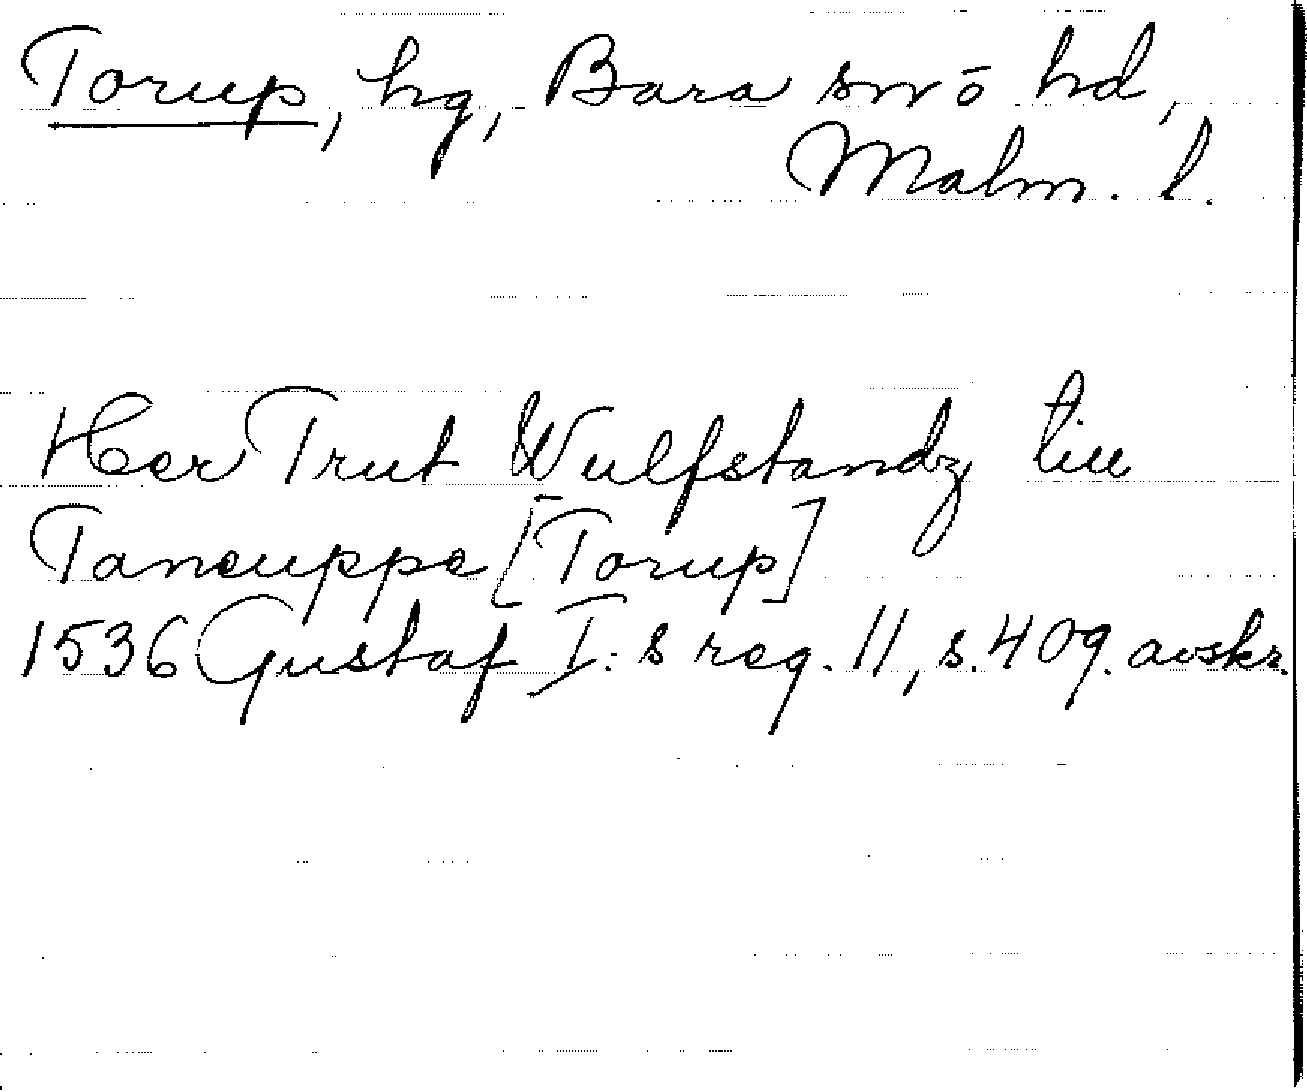 Torup, hg, Bara sn o hd,
Malm. l.
Her Trut Wulfstandz till
Taneuppe [Torup]
1536 Gustaf I:s reg. 11, s. 409. avskr.